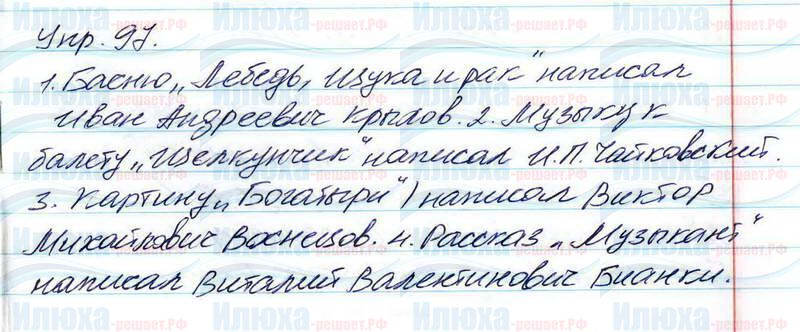 Упр. 97.
1. Басню „Лебедь, Щука и рак“ написал
Иван Андреевич Крылов. 2. Музыку к
балету „Щелкунчик“ написал И.П. Чайковский.
3. Картину „Богатыри“) написал Виктор
Михайлович Васнецов. 4. Рассказ „Музыкант“
написал Виталий Валентинович Бианки.